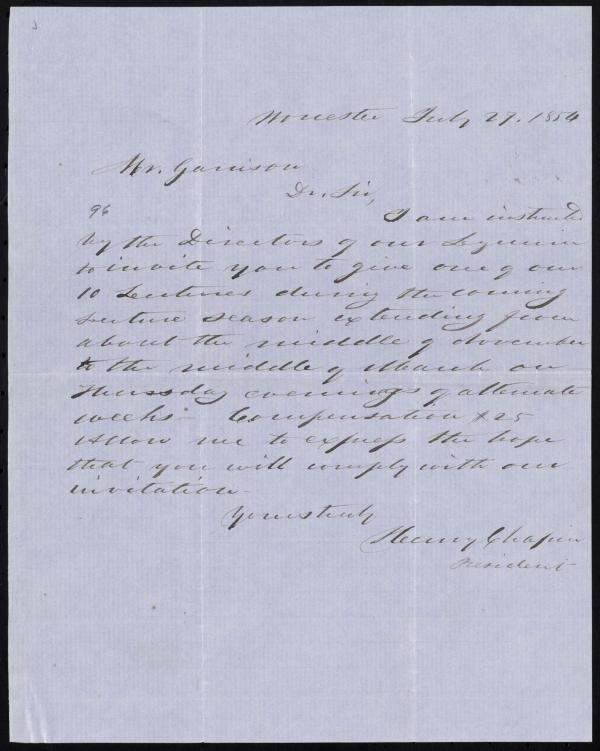 Worcester July 27. 1854
Mr. Garrison
Dr. Sir,
96
I am instructed
by the Directors of our Lyceum
to invite you to give one of our
10 Lectures during the coming
Lecture season extending from
about the middle of November
to the middle of March on
Thursday evenings of alternate
weeks - Compensation $25
Allow me to express the hope
that you will comply with our
invitation -
Yours truly
Henry Chapin
President